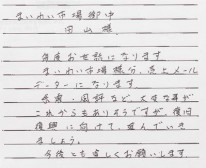 まいわい市場御中
向山様
毎度お世話になります
まいわい市場様分、売上メール
データーになります。
余震、風評など、大変な事が
これからもありそうですが、復旧
復興に向けて、進んでいき
ましょう。
今後とも宜しくお願いします